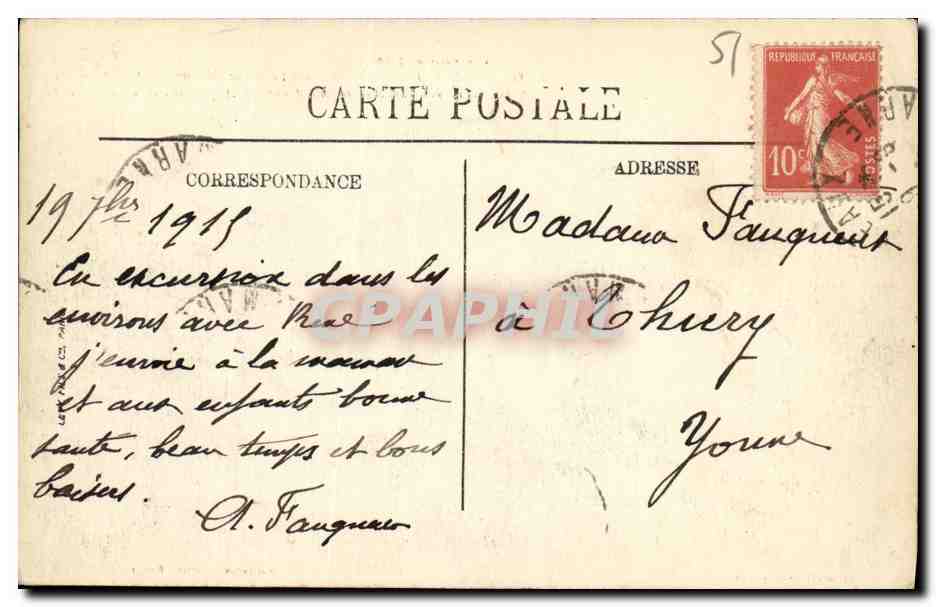 51
REPUBLIQUE FRANÇAISE
10c
POSTES
CARTE POSTALE
MARNE
MARNE
CORRESPONDANCE
ADRESSE
19 7bre 1915
En excursion dans les
environs avec René
j'envoie à la maman
et aux enfants bonne
santé, beau temps et bons
baisers.
Madame
à Thury
Yonne
MAR
MAR
CPARHIL